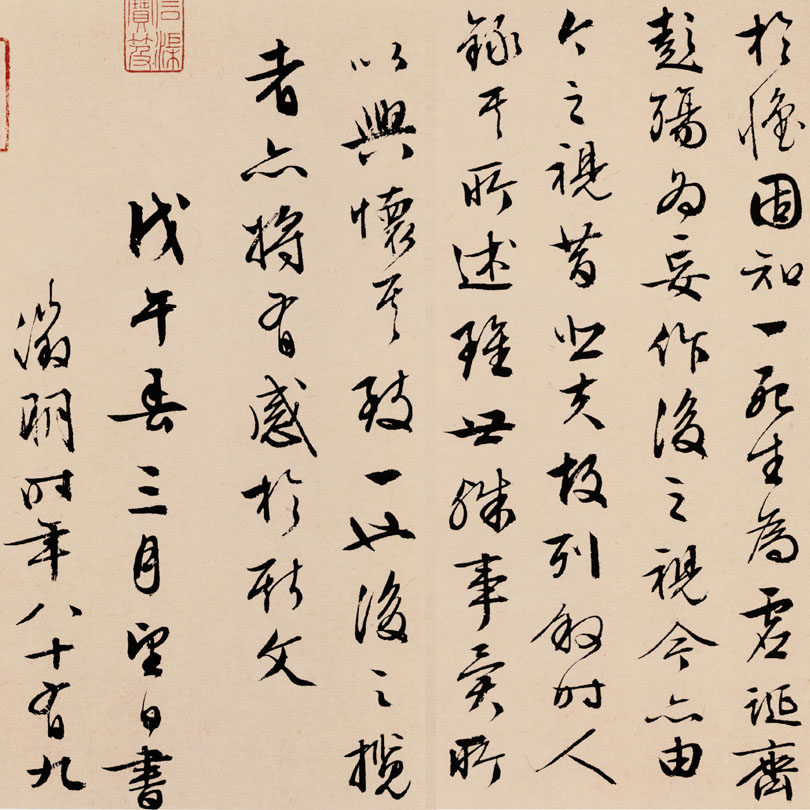 於懷固知一死生為虛誕齊
彭殤為妄作後之視今亦由
今之視昔悲夫故列敘時人
錄其所述雖世殊事異所
以興懷其致一也後之攬
者亦將有感於斯文
戊午春三月望日書
徵明時年八十有九
渠
寶笈